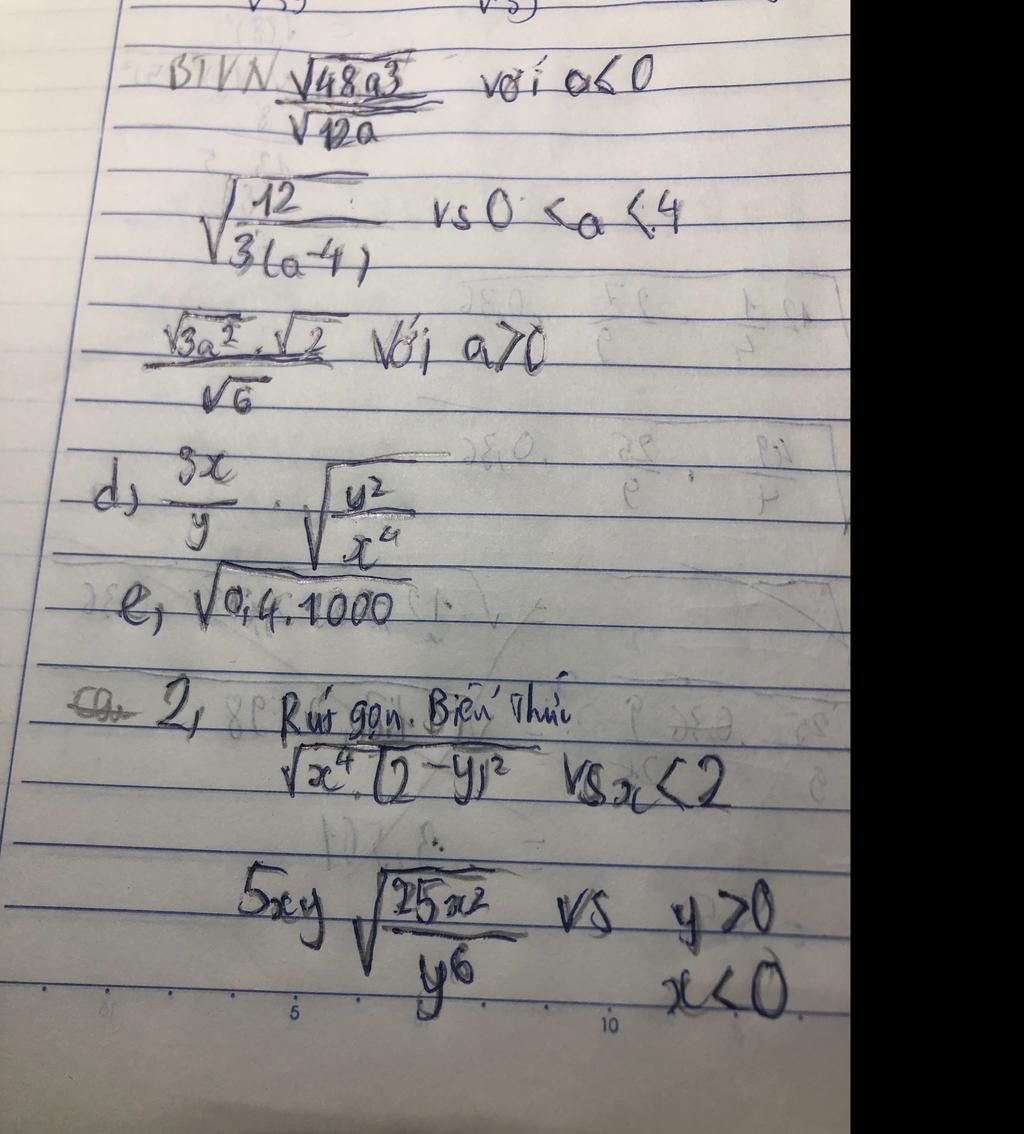 BTVN √48a3 / √12a với a<0
√12 / 3(a-4) vs 0 <a <4
√3a² . √2 / √6 Với a>0
d, 3x / y . √y² / x⁴
e, √0,4.1000
2, Rút gọn. Biểu thức
√x⁴.(2-y)² vs x<2
5xy √25x² / y⁶ vs y>0
x<0
5 10